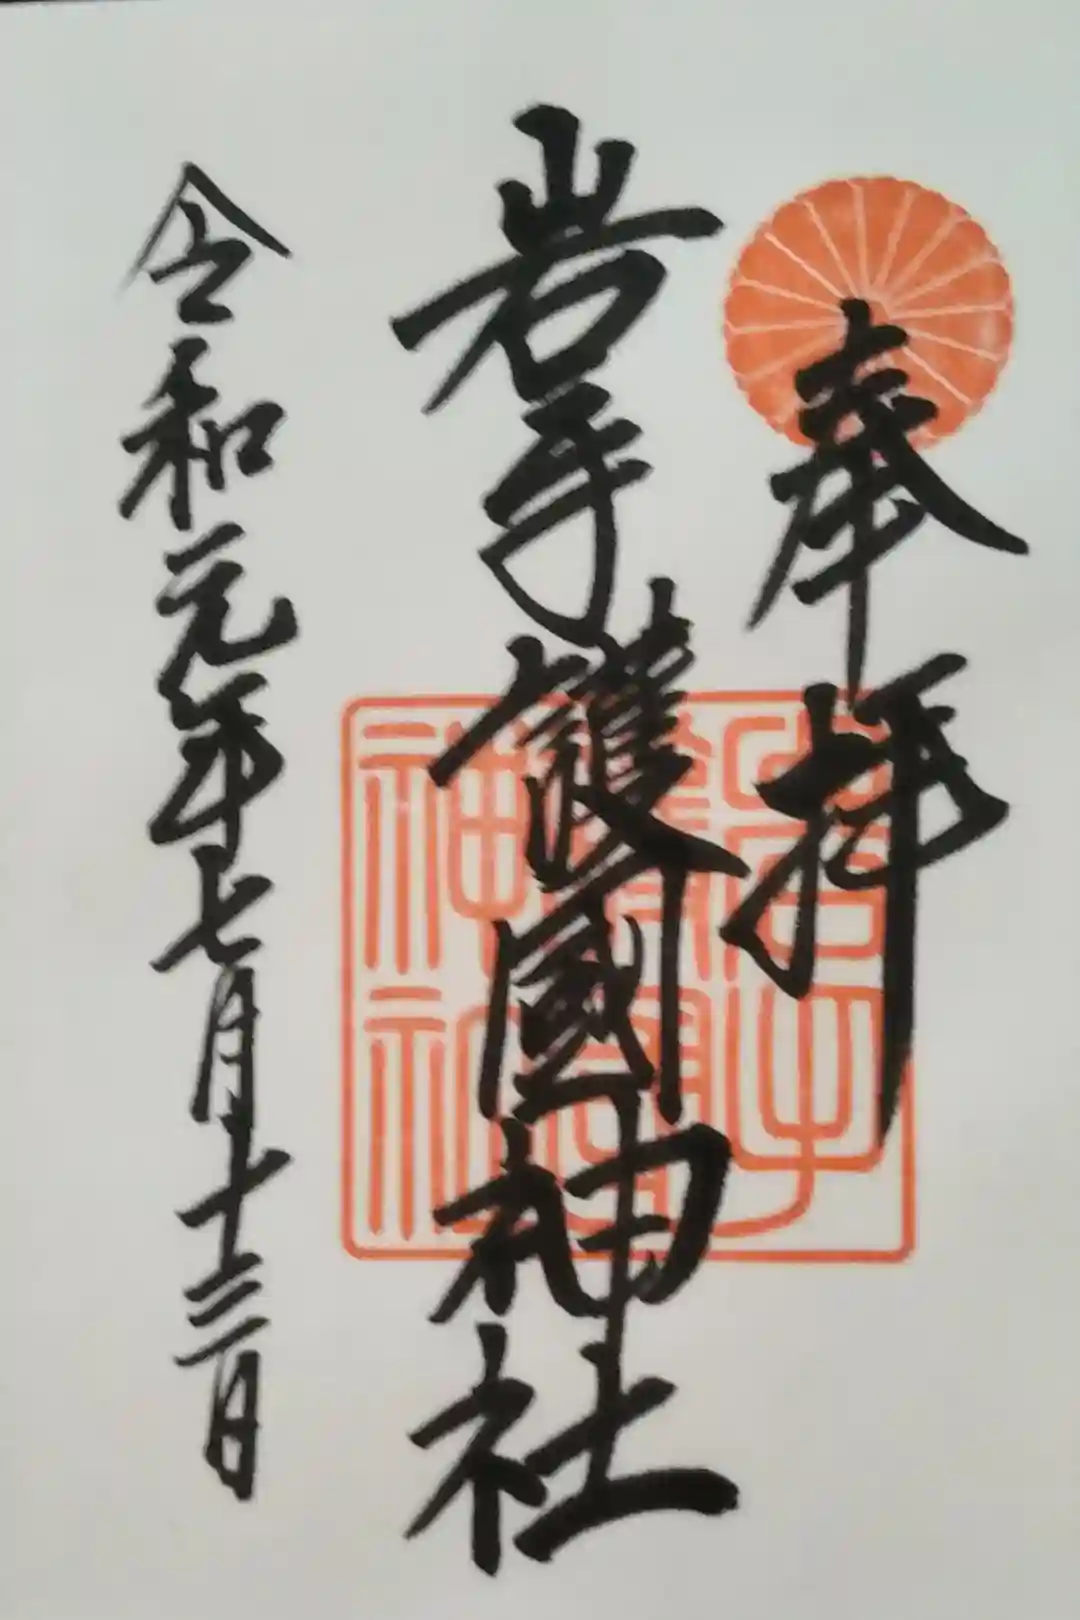 奉拝
岩手護國神社
岩手
護國
神社
令和元年七月十三日